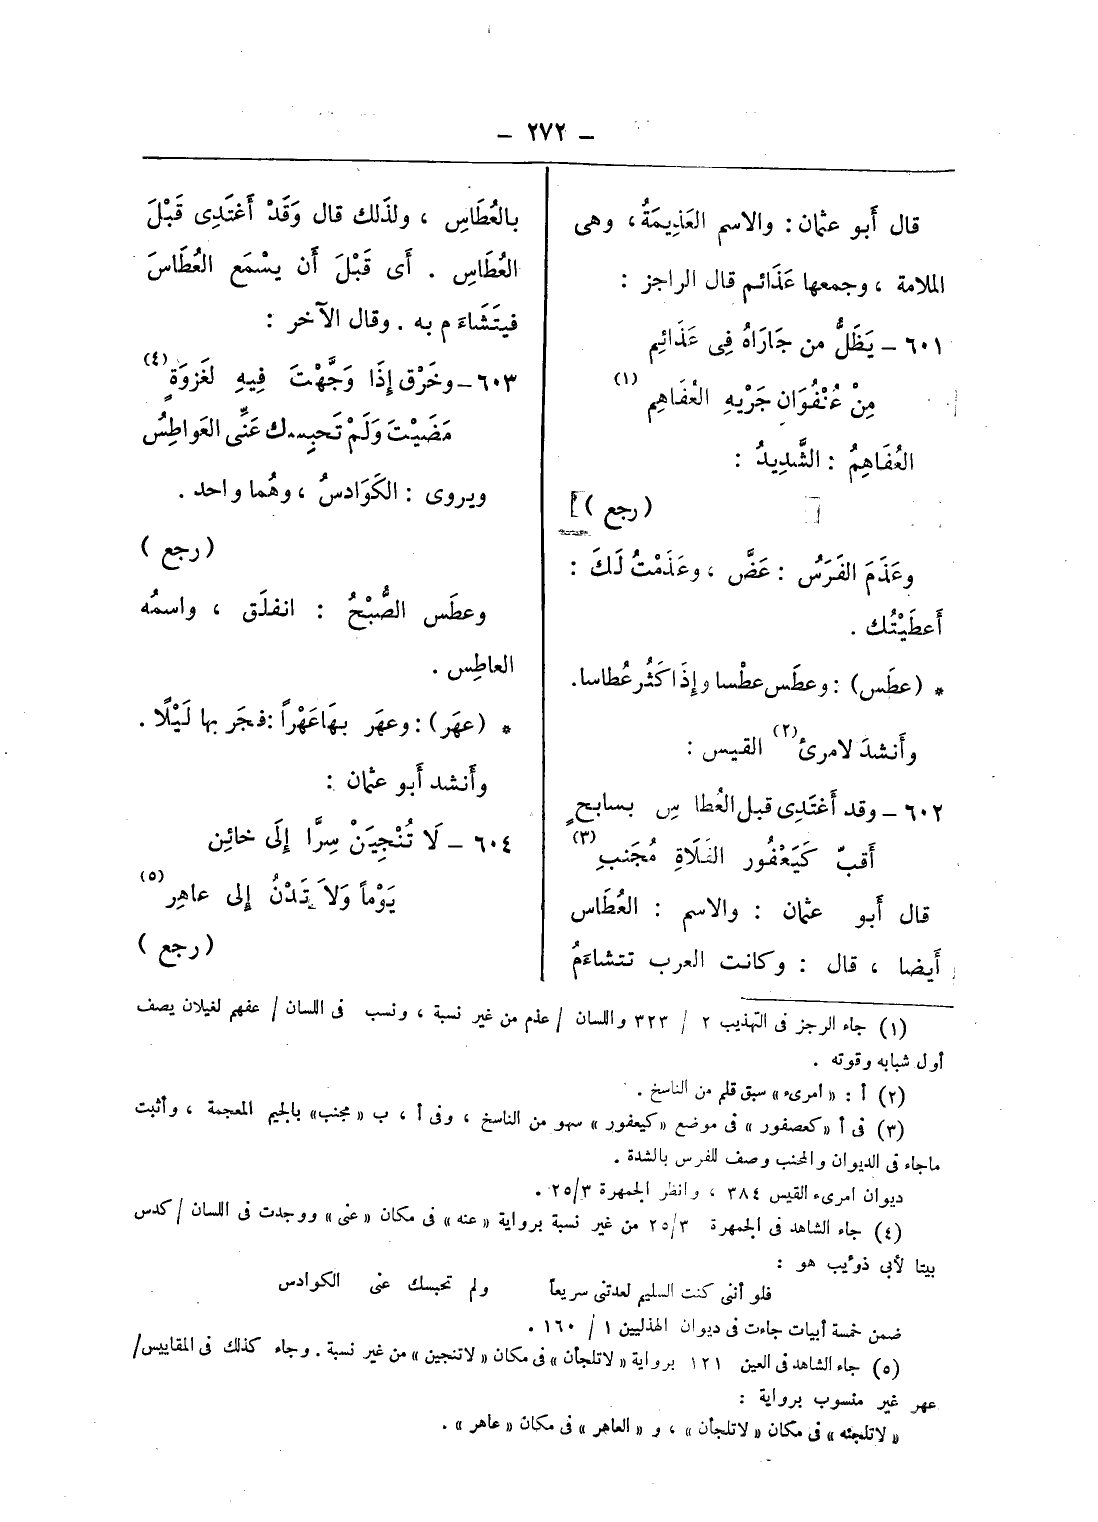 – ٢٧٢ –
قال أَبو عثمان : والاسم العَذِيمَةُ ، وهى
الملامة ، وجمعها عَذَائم قال الراجز :
٦٠١ – يَظَلُّ من جَارَاهُ فِى عَذَائِم
مِنْ عُنْفُوَانِ جَرْيِهِ العُفَاهِم (١)
العُفَاهِمُ : الشَّدِيدُ :
( رجع )]
وعَذَمَ الفَرَسُ : عَضَّ ، وعَذَمْتُ لَكَ :
أَعطَيْتُك .
* (عطَس) : وعطَس عطْسا وإِذَا كَثُر عُطاسا.
وأَنشدَ لامرئ (٢) القيس :
٦٠٢ – وقد أَغتَدِى قبل العُطا سِ بسابحٍ
أَقبّ كَيَعْفُور الفَلَاةِ مُجَنبِ (٣)
قال أَبو عثمان : والاسم : العُطَاس
أَيضا ، قال : وكانت العرب تتشاءَمُ
بالعُطَاسِ ، ولذَلك قال وَقَدْ أَغتَدِى قَبْلَ
العُطَاسِ . أَى قَبْلَ أَن يسْمَع العُطَاسَ
فيتَشَاءَم به . وقال الآخر :
٦٠٣ – وخَرْق إِذَا وَجَّهْتَ فِيهِ لغَزوَةٍ (٤)
مَضَيْتَ وَلَمْ تَحبِسك عَنِّى العَواطِسُ
ويروى : الكَوَادسُ ، وهُما واحد .
( رجع )
وعطَس الصُّبْحُ : انفلَق ، واسمُه
العاطِس .
* (عهَر) : وعهَر بهَا عَهْراً : فجَر بها لَيْلًا .
وأَنشد أَبو عثمان :
٦٠٤ – لَا تُنْجِيَنْ سِرًّا إِلَى خائِن
يَوْماً وَلاَ تَدْنُ إِلى عاهِر (٥)
( رجع )
(١) جاء الرجز فى التهذيب ٢ / ٣٢٣ واللسان / عذم من غير نسبة ، ونسب فى اللسان / عفهم لغيلان يصف
أول شبابه وقوته .
(٢) أ : « أمرىء » سبق قلم من الناسخ .
(٣) فى أ « كعصفور » فى موضع « كيعفور » سهو من الناسخ ، وفى أ ، ب « مجنب » بالجيم المعجمة ، وأثبت
ماجاء فى الديوان والمحنب وصف للفرس بالشدة .
ديوان امرىء القيس ٣٨٤ ، وانظر الجمهرة ٢٥/٣ .
(٤) جاء الشاهد فى الجمهرة ٢٥/٣ من غير نسبة برواية « عنه » فى مكان « عنى » ووجدت فى اللسان / كدس
بيتا لأبي ذوئيب هو :
فلو أننى كنت السليم لعدتنى سريعاً ولم تحبسك عنى الكوادس
ضمن خمسة أبيات جاءت فى ديوان الهذليين ١ / ١٦٠ .
(٥) جاء الشاهد فى العين ١٢١ برواية « لاتلجأن » فى مكان « لاتنجين » من غير نسبة . وجاء كذلك فى المقاييس /
عهر غير منسوب برواية :
« لاتلجئه » فى مكان « لاتلجأن » ، و « العاهر » فى مكان « عاهر » .